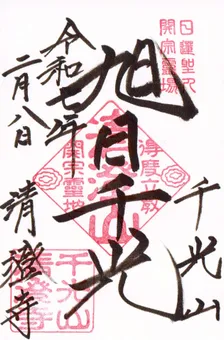 日蓮聖人
開宗靈場
千光山
旭日千光
得度立教
清澄山
開宗靈地
令和七年
二月八日
清澄寺
千光山
清澄寺